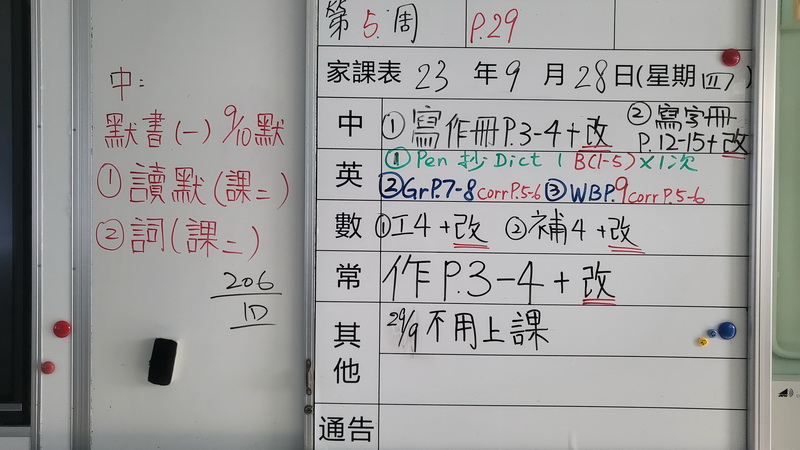 中：
默書(一) 9/10默
①讀默(課二)
②詞(課二)
206
1D
第5.周 P.29
家課表 23 年 9 月 28 日(星期四)
中 ①寫作冊P.3-4+改 ②寫字冊P.12-15+改
英 ①Pen 抄Dict 1 B(1-5)×1次
②GrP.7-8 corrP.5-6 ③WBP.9 corrP.5-6
數 ①工4+改 ②補4+改
常 作P.3-4+改
其他 29/9不用上課
通告